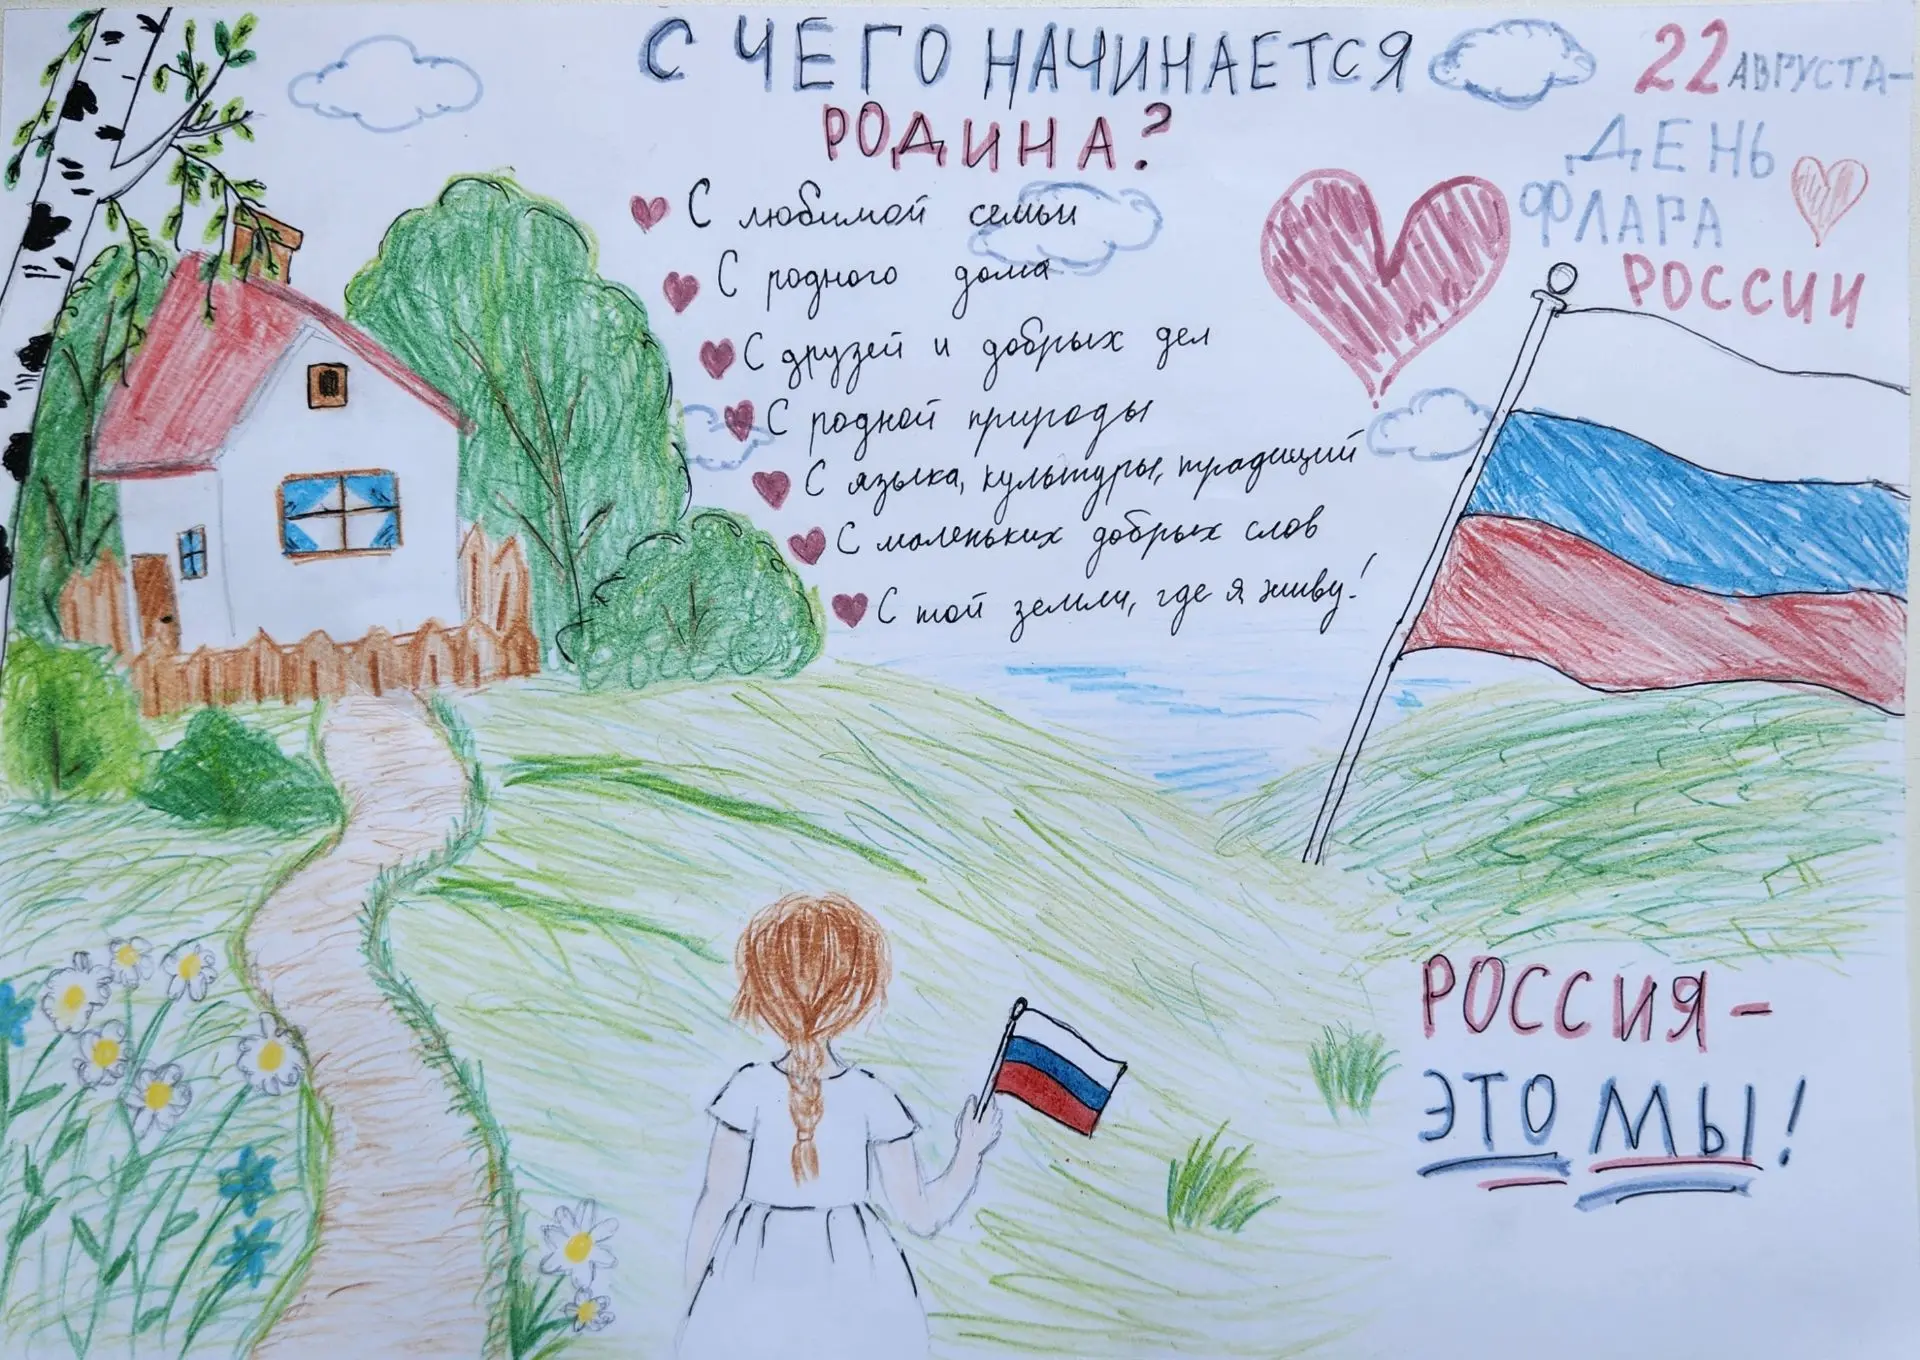 С ЧЕГО НАЧИНАЕТСЯ
РОДИНА?
С любимой семьи
С родного дома
С друзей и добрых дел
С родной природы
С языка, культуры, традиций
С маленьких добрых слов
С той земли, где я живу!
22 АВГУСТА-
ДЕНЬ
ФЛАГА
РОССИИ
РОССИЯ-
ЭТО МЫ!